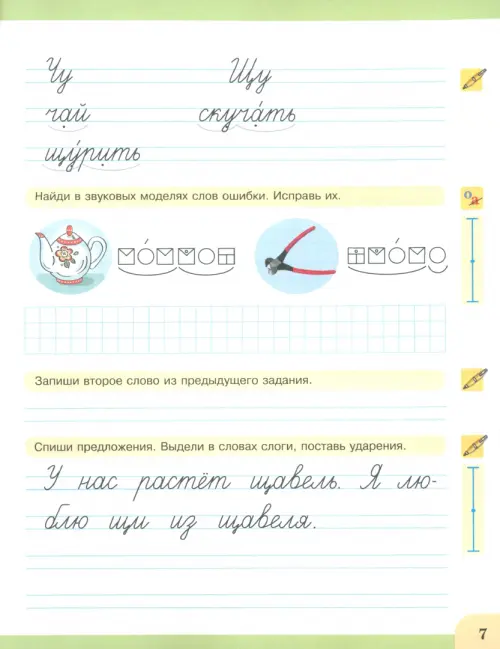 Чу Щу
чай скуча́ть
щу́рить
Найди в звуковых моделях слов ошибки. Исправь их.
Запиши второе слово из предыдущего задания.
Спиши предложения. Выдели в словах слоги, поставь ударения.
У нас растёт щавель. Я лю-
блю щи из щавеля.
7